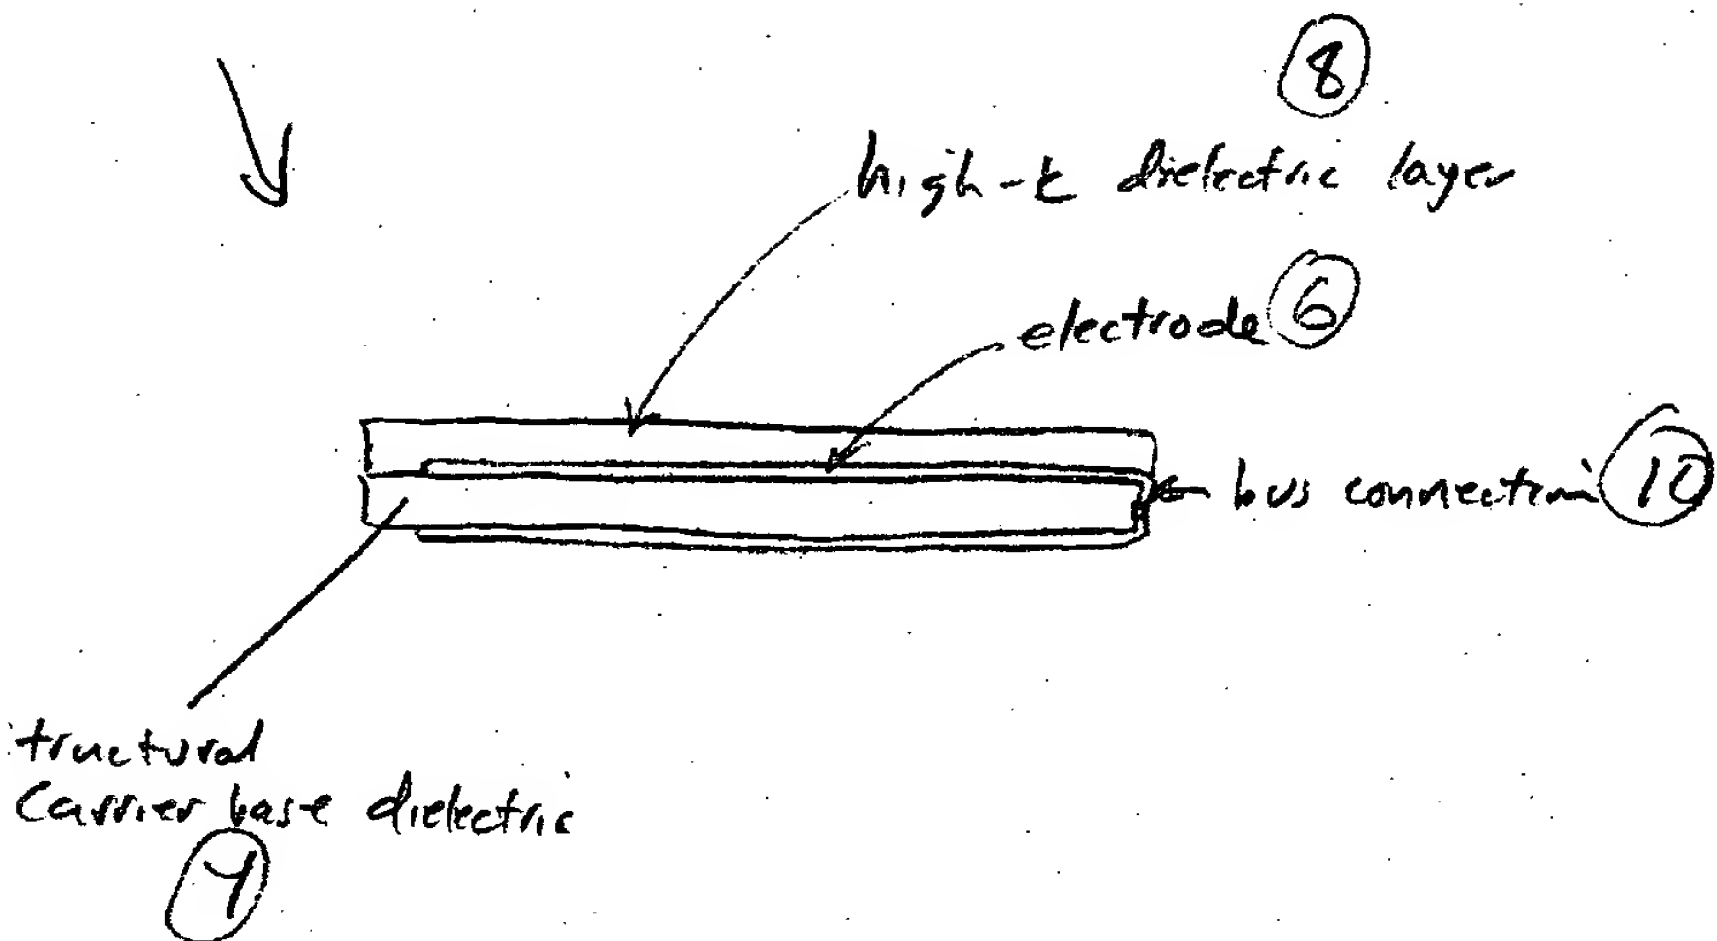 8
high-k dielectric layer
electrode 6
bus connection 10
tructural
Carrier base dielectric
4